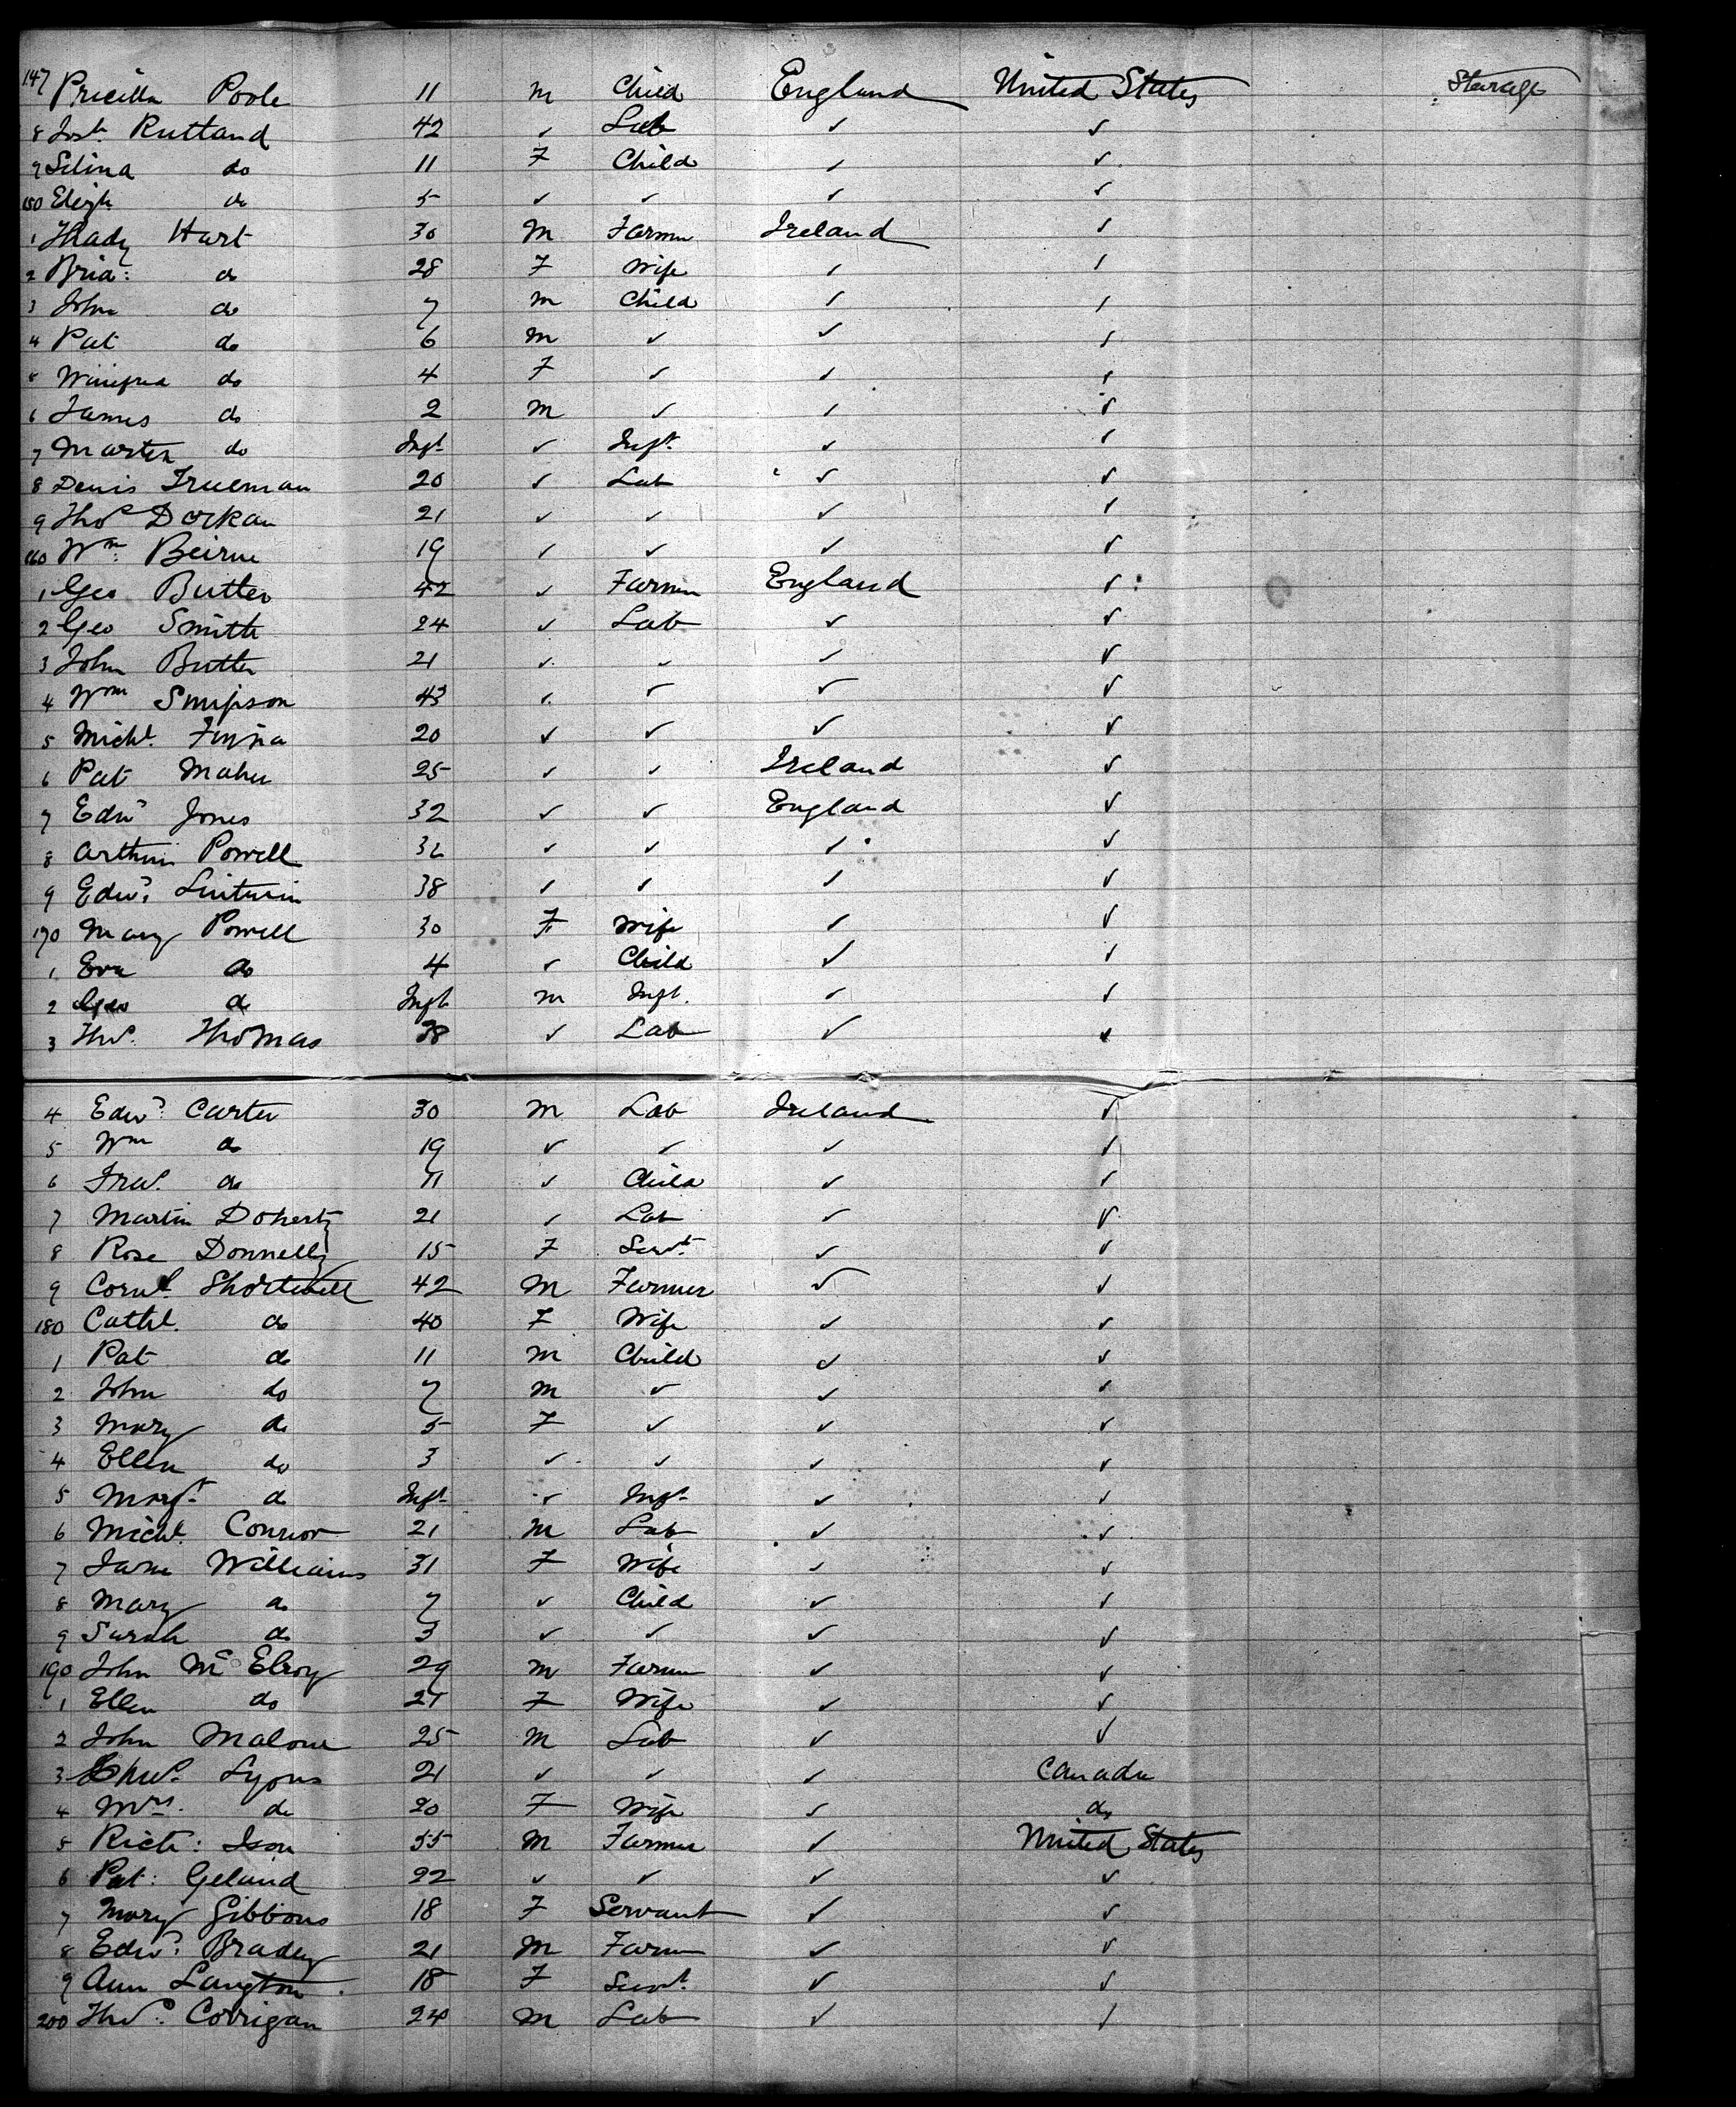 147 Pricilla Poole 11 m Child England United States Sterage
8 Josh Rutland 42 ✓ Lab ✓ ✓
9 Selina do 11 F Child ✓ ✓
150 do 5 ✓ ✓ ✓ ✓
1 Thady Hart 30 M Farmer Ireland ✓
2 Brid: do 28 F Wife ✓ ✓
3 John do 7 m Child ✓ ✓
4 Pat do 6 m ✓ ✓ ✓
5 Winifred do 4 F ✓ ✓ ✓
6 James do 2 m ✓ ✓ ✓
7 Martin do Inft ✓ Inft ✓ ✓
8 Denis Trueman 20 ✓ Lab ✓ ✓
9 Thos Dorkan 21 ✓ ✓ ✓ ✓
160 Wm: Beirne 19 ✓ ✓ ✓ ✓
1 Geo Butler 42 ✓ Farmer England ✓
2 Geo Smith 24 ✓ Lab ✓ ✓
3 John Butler 21 ✓ ✓ ✓ ✓
4 Wm Simpson 43 ✓ ✓ ✓ ✓
5 Michl. 20 ✓ ✓ ✓ ✓
6 Pat Maher 25 ✓ ✓ Ireland ✓
7 Edwd Jones 32 ✓ ✓ England ✓
8 Arthur Powell 32 ✓ ✓ ✓ ✓
9 Edwd: 38 ✓ ✓ ✓ ✓
170 Mary Powell 30 F Wife ✓ ✓
1 Eva do 4 ✓ Child ✓ ✓
2 Geo do Inft m Inft. ✓ ✓
3 Thos. Thomas 38 ✓ Lab ✓ ✓
4 Edwd: Carter 30 m Lab Ireland ✓
5 Wm do 19 ✓ ✓ ✓ ✓
6 do 11 ✓ Child ✓ ✓
7 Martin Doherty 21 ✓ Lab ✓ ✓
8 Rose Donnelly 15 F Servt. ✓ ✓
9 Cornl. Shortwell 42 M Farmer ✓ ✓
180 Cathl. do 40 F Wife ✓ ✓
1 Pat do 11 m Child ✓ ✓
2 John do 7 m ✓ ✓ ✓
3 Mary do 5 F ✓ ✓ ✓
4 Ellen do 3 ✓ ✓ ✓ ✓
5 Margt do Inft ✓ Inft ✓ ✓
6 Michl. Connor 21 m Lab ✓ ✓
7 Jane Williams 31 F Wife ✓ ✓
8 Mary do 7 ✓ Child ✓ ✓
9 Sarah do 3 ✓ ✓ ✓ ✓
190 John McElroy 29 m Farmer ✓ ✓
1 Ellen do 21 F Wife ✓ ✓
2 John Malone 25 m Lab ✓ ✓
3 Lyons 21 ✓ ✓ ✓ Canada
4 Mrs. do 20 F Wife ✓ do
5 Richd: Ison 55 M Farmer ✓ United States
6 Pat: Geland 22 ✓ ✓ ✓ ✓
7 Mary Gibbons 18 F Servant ✓ ✓
8 Edwd: Brady 21 m Farmer ✓ ✓
9 Ann Langton 18 F Servt. ✓ ✓
200 Thos: Corrigan 24 m Lab ✓ ✓